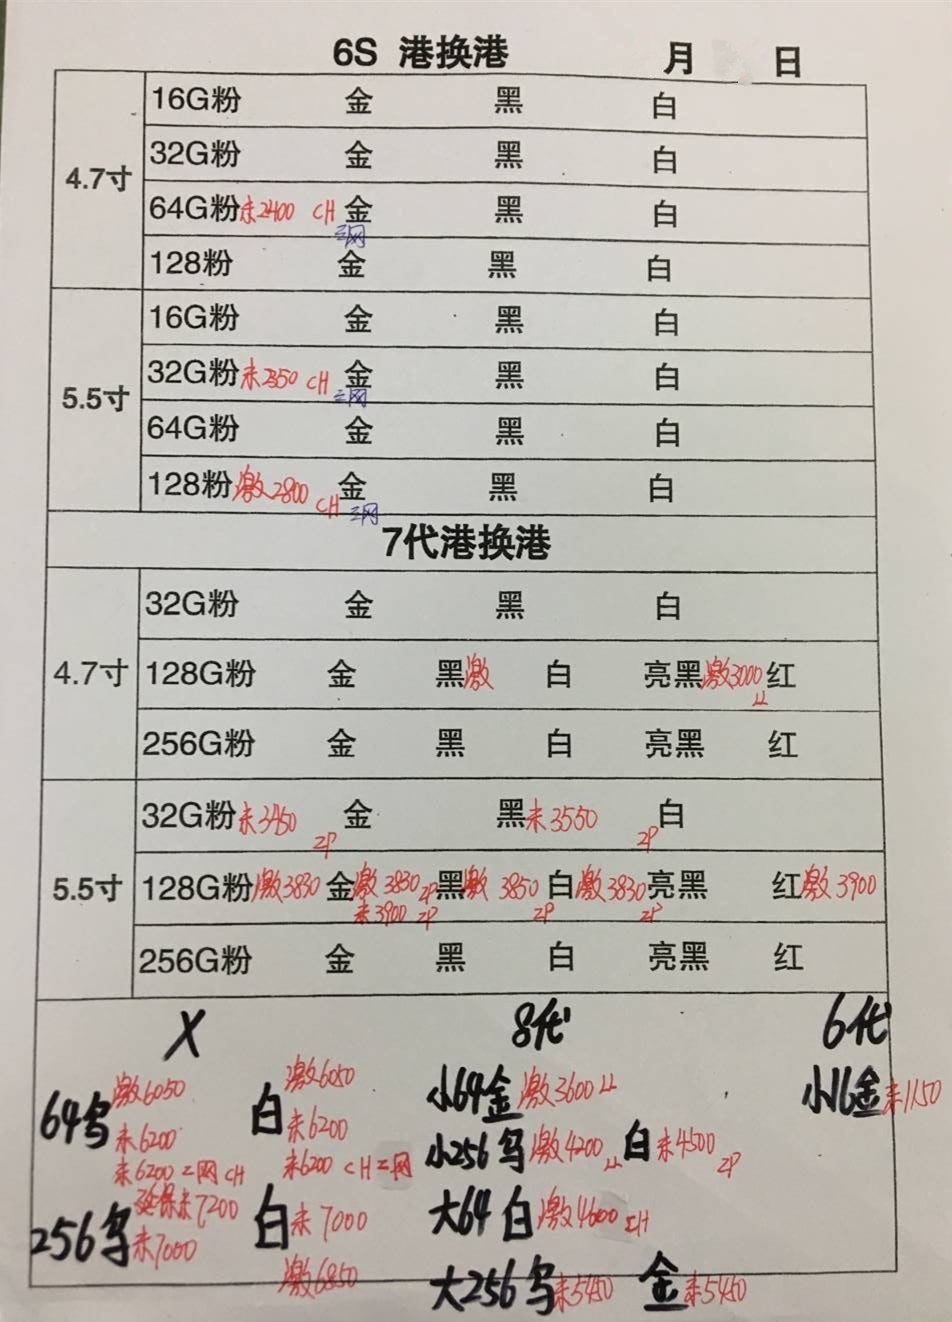 6S 港换港 月 日
4.7寸
16G粉 金 黑 白
32G粉 金 黑 白
64G粉 未2400 CH 金 黑 白
三网
128粉 金 黑 白
5.5寸
16G粉 金 黑 白
32G粉 未2350 CH 金 黑 白
三网
64G粉 金 黑 白
128粉 激2800 CH 金 黑 白
三网
7代港换港
4.7寸
32G粉 金 黑 白
128G粉 金 黑激 白 亮黑激3000 红
LL
256G粉 金 黑 白 亮黑 红
5.5寸
32G粉未3450 金 黑未3550 白
ZP ZP
128G粉激3830 金激3830 ZP 黑激3850 白激3830 亮黑 红激3900
未3900 ZP ZP ZP
256G粉 金 黑 白 亮黑 红
X 8代 6代
64乌 激6050
未6200
未6200 三网 CH
白 激6050
未6200
未6200 CH 三网
256乌 延保未7200
未7000
白 未7000
激6850
小64金 激3600 LL
小256乌 激4200 LL 白 未4500 ZP
大64白 激4600 CH
大256乌 未5450 金 未5450
小16金 未1150